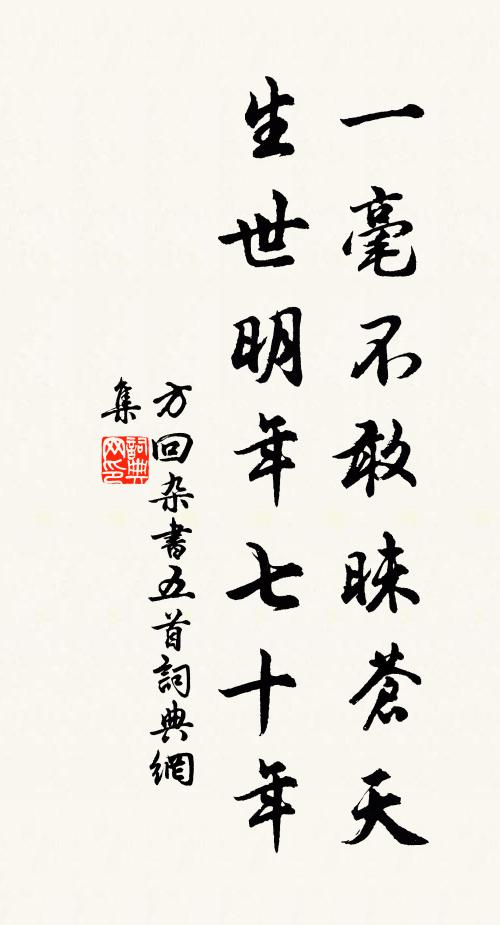 一毫不敢昧蒼天
生世明年七十年
方回杂書五首詞典網
集
詞典网印